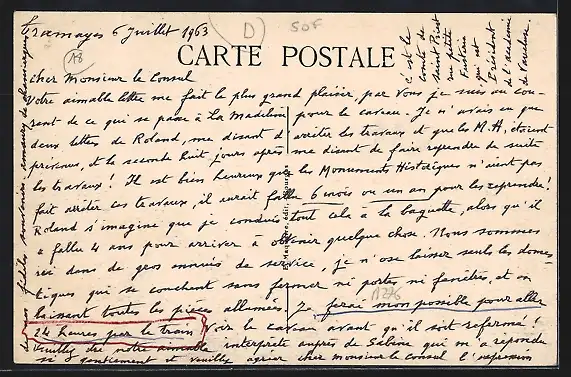 Tramayes 6 Juillet 1963
D
SOF
A8
CARTE POSTALE
Cher Monsieur le Consul
Votre aimable lettre me fait le plus grand plaisir, par vous je suis au cou-
rant de ce qui se passe à La Madeleine pour le caveau. Je n'avais eu que
deux lettres de Roland, me disant d'arrêter les travaux et que les M.H. étaient
prévenus, et la seconde huit jours après me disant de faire reprendre de suite
les travaux! Il est bien heureux que les Monuments Historiques n'aient pas
fait arrêter ces travaux, il aurait fallu 6 mois ou un an pour les reprendre!
Roland s'imagine que je conduis tout cela à la baguette, alors qu'il
a fallu 4 ans pour arriver à obtenir quelque chose. Nous sommes
ici dans de gros ennuis de service, je n'ose laisser seuls les domes-
tiques qui se couchent sans fermer ni portes, ni fenêtres, et en
laissant toutes les pièces allumées. Je ferai mon possible pour aller
24 heures par le train voir le caveau avant qu'il soit refermé!
Veuillez être notre aimable interprète auprès de Sabine qui m'a répondu
si gentiment et veuillez agréer cher Monsieur le Consul l'expression
A276
c'est le
comte de
Saint Priest
qui est
Président
de l'académie
de Vaucluse